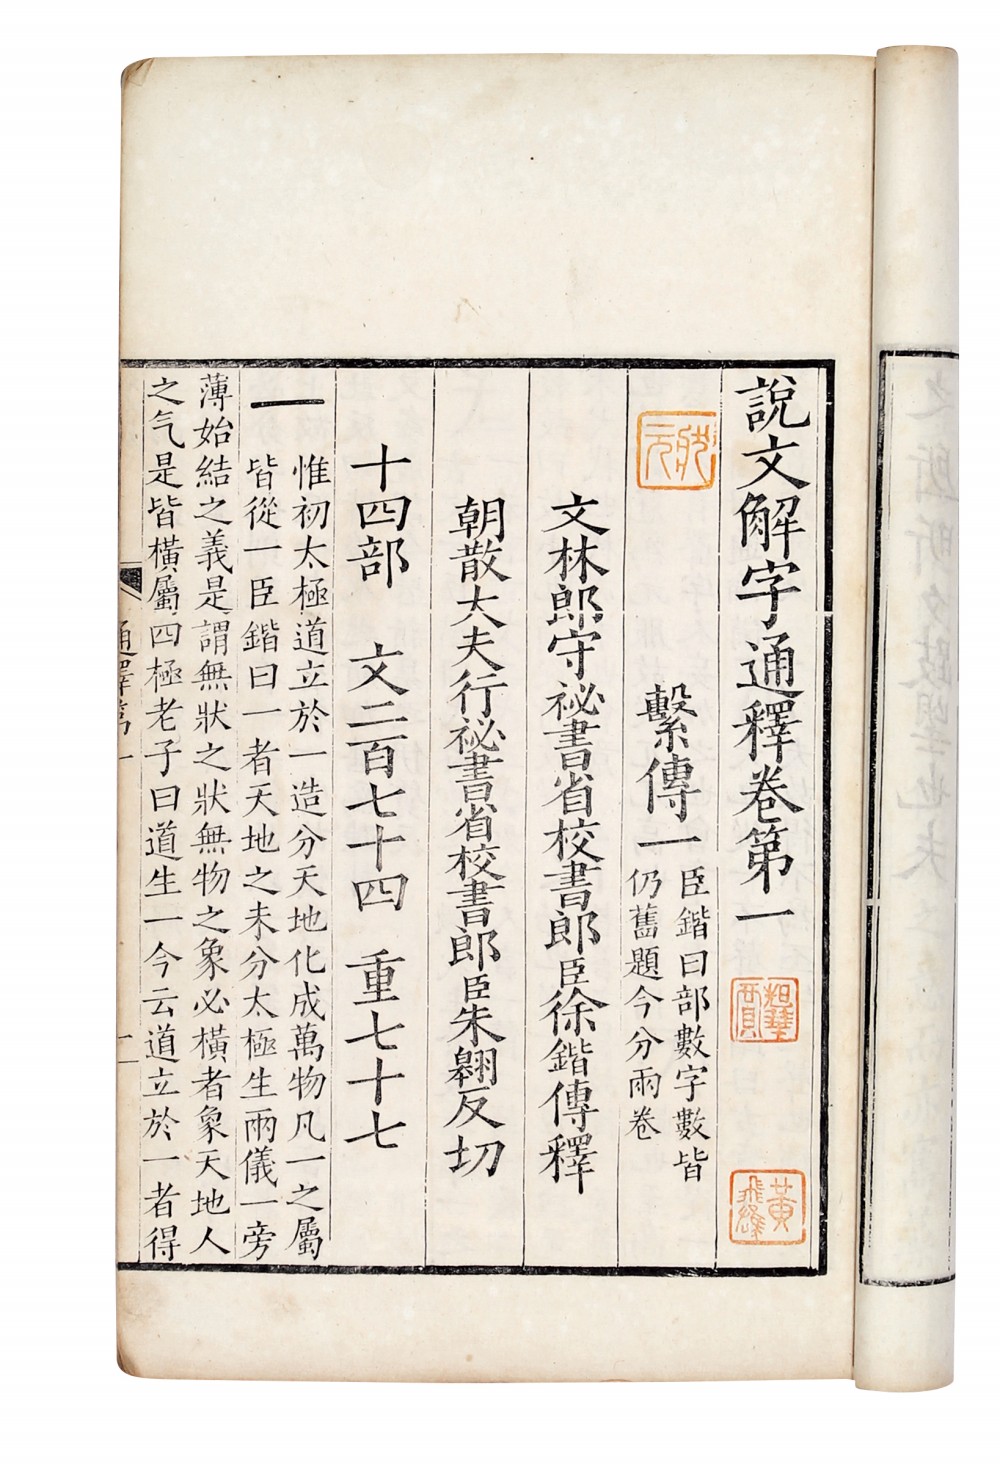 說文解字通釋卷第一
繫傳一
臣鍇曰部數字數皆
仍舊題今分兩卷
文林郎守祕書省校書郎臣徐鍇傳釋
朝散大夫行祕書省校書郎臣朱翱反切
十四部 文二百七十四 重七十七
一
惟初太極道立於一造分天地化成萬物凡一之屬
皆從一臣鍇曰一者天地之未分太極生兩儀一旁
薄始結之義是謂無狀之狀無物之象必橫者象天地人
之气是皆橫屬四極老子曰道生一今云道立於一者得
通釋第一
黃飛雄